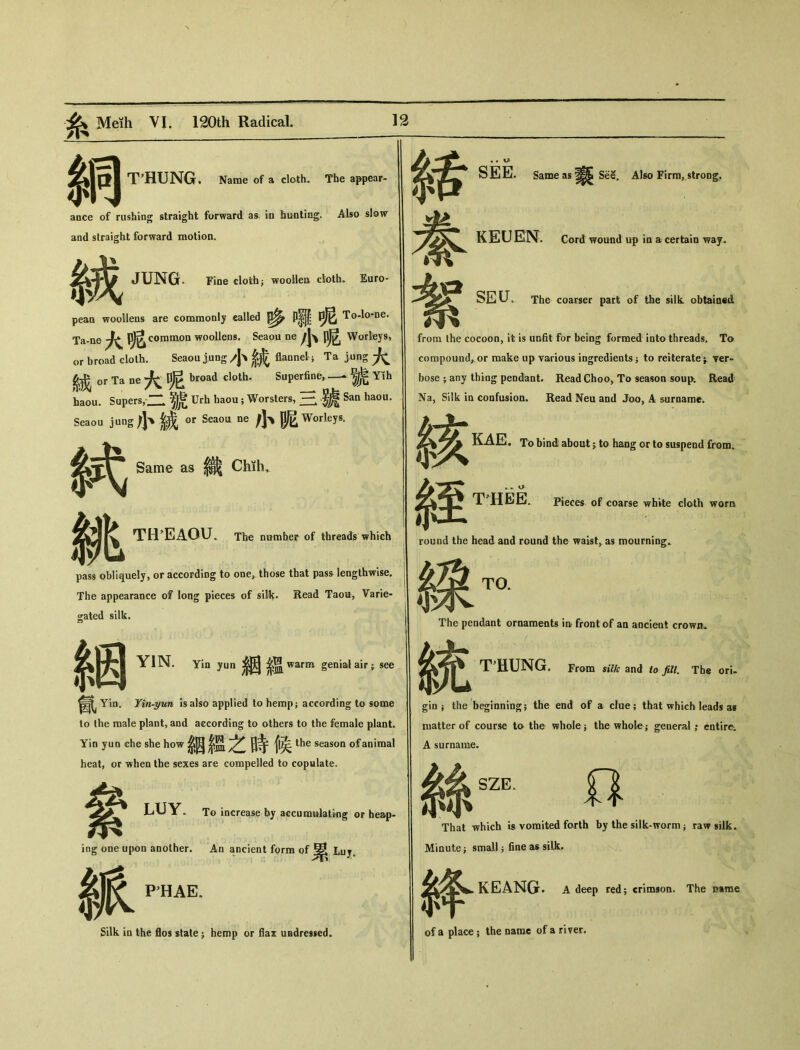 糸 Meïh VI. 120th Radical. 12
絧 T'HUNG. Name of a cloth. The appear-
ance of rushing straight forward as in hunting. Also slow
and straight forward motion.
絨 JUNG. Fine cloth; woollen cloth. Euro-
pean woollens are commonly called 哆囉呢 To-lo-ne.
Ta-ne 大呢 common woollens. Seaou ne 小呢 Worleys,
or broad cloth. Seaou jung 小絨 flannel; Ta jung 大
絨 or Ta ne 大呢 broad cloth. Superfine, 一號 Yih
haou. Supers, 二號 Urh haou; Worsters, 三號 San haou.
Seaou jung 小絨 or Seaou ne 小呢 Worleys.
絨 Same as 織 Chïh.
絩 TH'EAOU. The number of threads which
pass obliquely, or according to one, those that pass lengthwise.
The appearance of long pieces of silk. Read Taou, Varie-
gated silk.
絪 YIN. Yin yun 絪縕 warm genial air; see
氤 Yin. Yin-yun is also applied to hemp; according to some
to the male plant, and according to others to the female plant.
Yin yun che she how 絪縕之時候 the season of animal
heat, or when the sexes are compelled to copulate.
絫 LUY. To increase by accumulating or heap-
ing one upon another. An ancient form of 累 Luy.
P'HAE.
Silk in the flos state; hemp or flax undressed.
絬 SËË. Same as Sëë. Also Firm, strong.
絭 KEUEN. Cord wound up in a certain way.
絮 SEU. The coarser part of the silk obtained
from the cocoon, it is unfit for being formed into threads. To
compound, or make up various ingredients; to reiterate; ver-
bose; any thing pendant. Read Choo, To season soup. Read
Na, Silk in confusion. Read Neu and Joo, A surname.
絯 KAE. To bind about; to hang or to suspend from.
絰 T'HËË. Pieces of coarse white cloth worn
round the head and round the waist, as mourning.
TO.
The pendant ornaments in front of an ancient crown.
統 T'HUNG. From silk and to fill. The ori-
gin; the beginning; the end of a clue; that which leads as
matter of course to the whole; the whole; general; entire.
A surname.
絲 SZE.
That which is vomited forth by the silk-worm; raw silk.
Minute; small; fine as silk.
絳 KEANG. A deep red; crimson. The name
of a place; the name of a river.